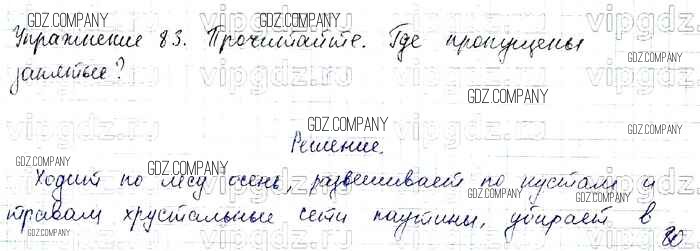 Упражнение 83. Прочитайте. Где пропущены
запятые?
Решение.
Ходит по лесу осень, развешивает по кустам и
травам хрустальные сети паутины, убирает в
GDZ.COMPANY
GDZ.COMPANY
GDZ.COMPANY
GDZ.COMPANY
GDZ.COMPANY
GDZ.COMPANY
GDZ.COMPANY
GDZ.COMPANY
vipgdz
vipgdz
vipgdz
vipgdz